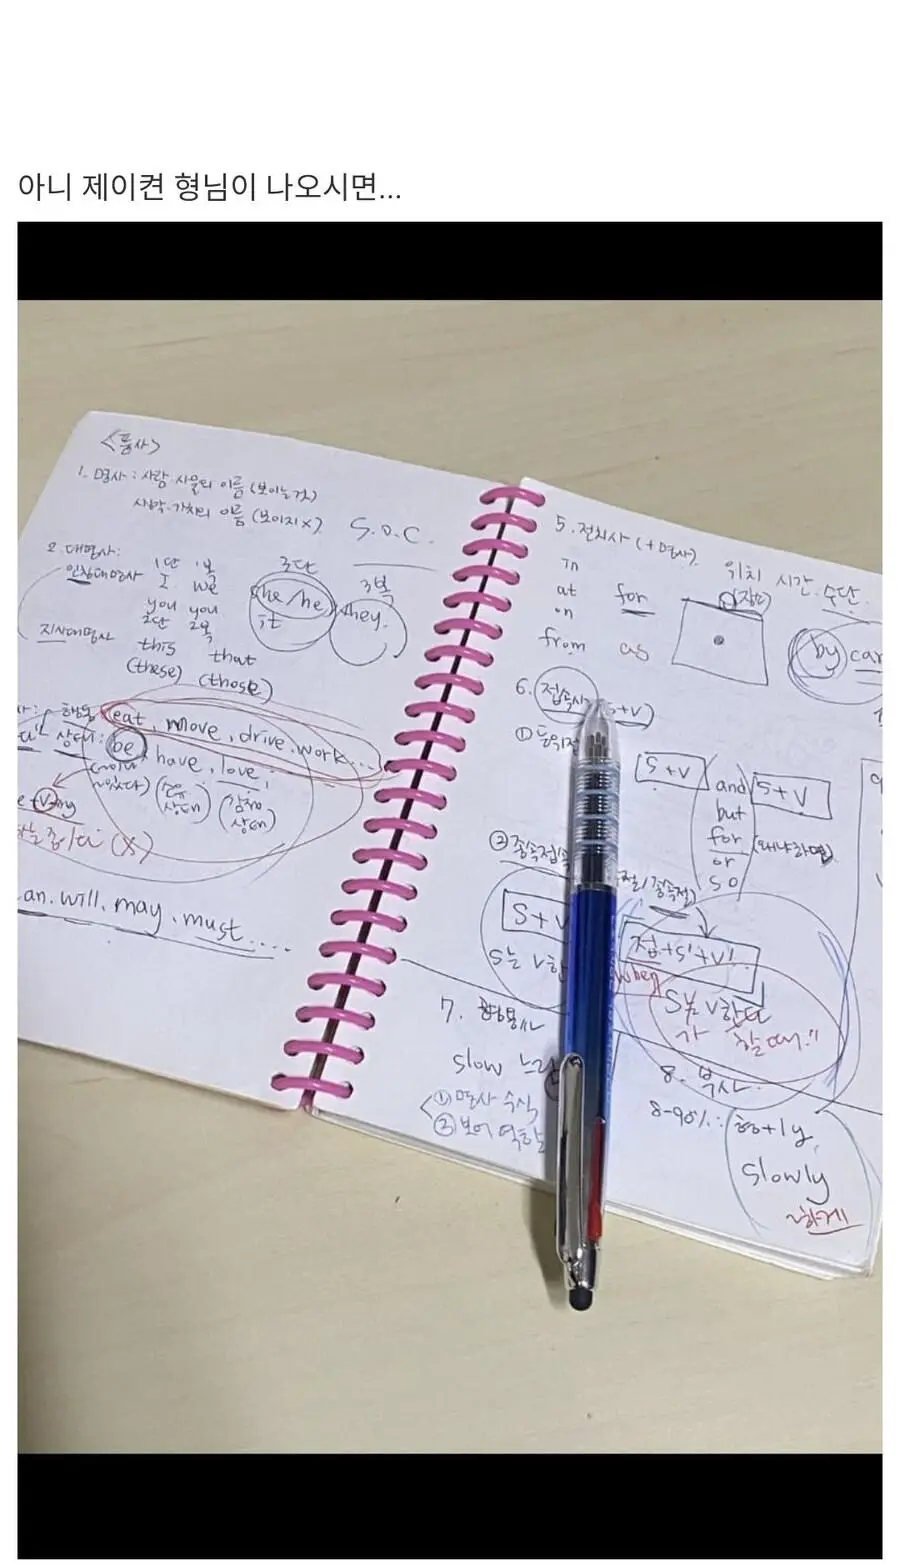 아니 제이켠 형님이 나오시면...
<품사>
1. 명사 : 사람 사물의 이름 (보이는 것)
생각.가치의 이름 (보이지 X)
S.O.C.
2. 대명사:
인칭대명사
1단 1복 3단 3복
I we she/he they.
you you it
2단 2복
지시대명사
this that
(these) (those)
eat, move, drive, work...
상태: be, have, love
상태) (감정
상태)
(X)
will, may, must....
5. 전치사 (+명사)
위치 시간 수단
in
at for
on
from as
by car
6. 접속사 S+V)
①
S+V and S+V
but
for (왜냐하면)
or
so
② 종속접속
S+V
S는 V
종속절)
접+S'+V'
when
S는 V한다
가 할 때."
7. 형용사
slow
① 명사 수식
② 보어 역할
8. 부사
8-90%:
+ly
slowly
~하게